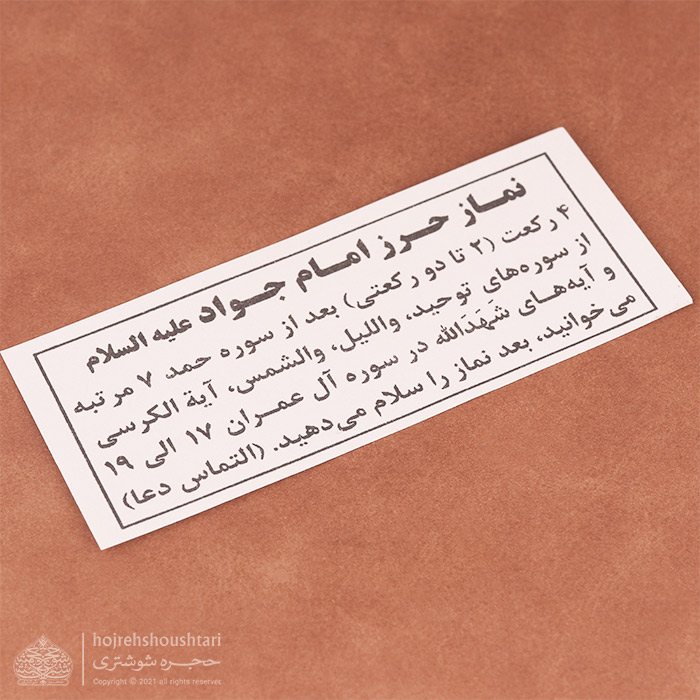 نماز حرز امام جواد علیه السلام
۴ رکعت (۲ تا دو رکعتی) بعد از سوره حمد ۷ مرتبه
از سوره‌های توحید، واللیل، والشمس، آیة الکرسی
و آیه‌های شَهَدَالله در سوره آل عمران ۱۷ الی ۱۹
می‌خوانید، بعد نماز را سلام می‌دهید. (التماس دعا)
hojrehshoushtari
حجره شوشتری
Copyright © 2021 all rights reserves